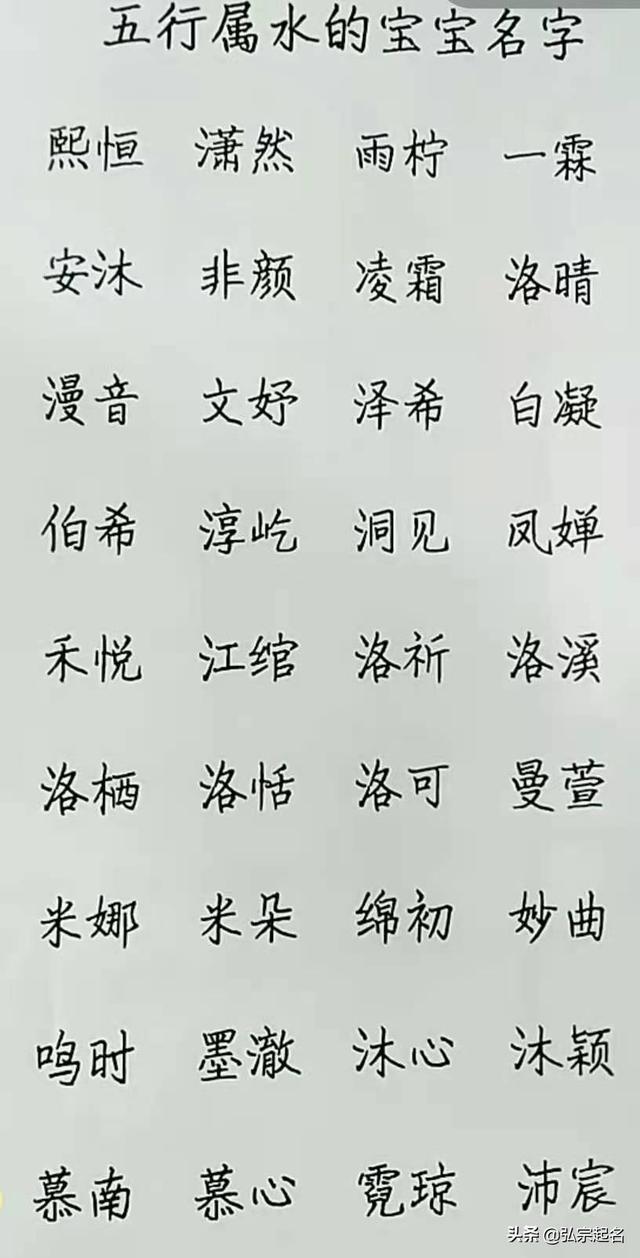 五行属水的宝宝名字
熙恒 潇然 雨柠 一霖
安沐 非颜 凌霜 洛晴
漫音 文妤 泽希 白凝
伯希 淳屹 洞见 凤婵
禾悦 江绾 洛祈 洛溪
洛栖 洛恬 洛可 曼萱
米娜 米朵 绵初 妙曲
鸣时 墨澈 沐心 沐颖
慕南 慕心 霓琼 沛宸
头条 @弘宗起名